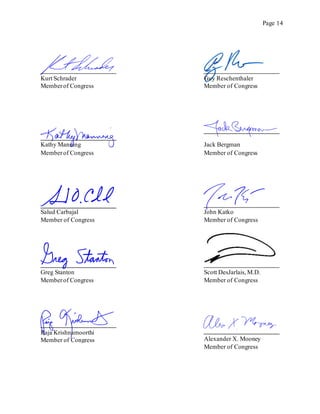 Page 14
Kurt Schrader
Kurt Schrader
Member of Congress
Guy Reschenthaler
Member of Congress
Kathy Manning
Kathy Manning
Member of Congress
Jack Bergman
Jack Bergman
Member of Congress
Salud Carbajal
Member of Congress
John Katko
Member of Congress
Greg Stanton
Greg Stanton
Member of Congress
Scott DesJarlais, M.D.
Member of Congress
Raja Krishnamoorthi
Member of Congress
Alex X Mooney
Alexander X. Mooney
Member of Congress